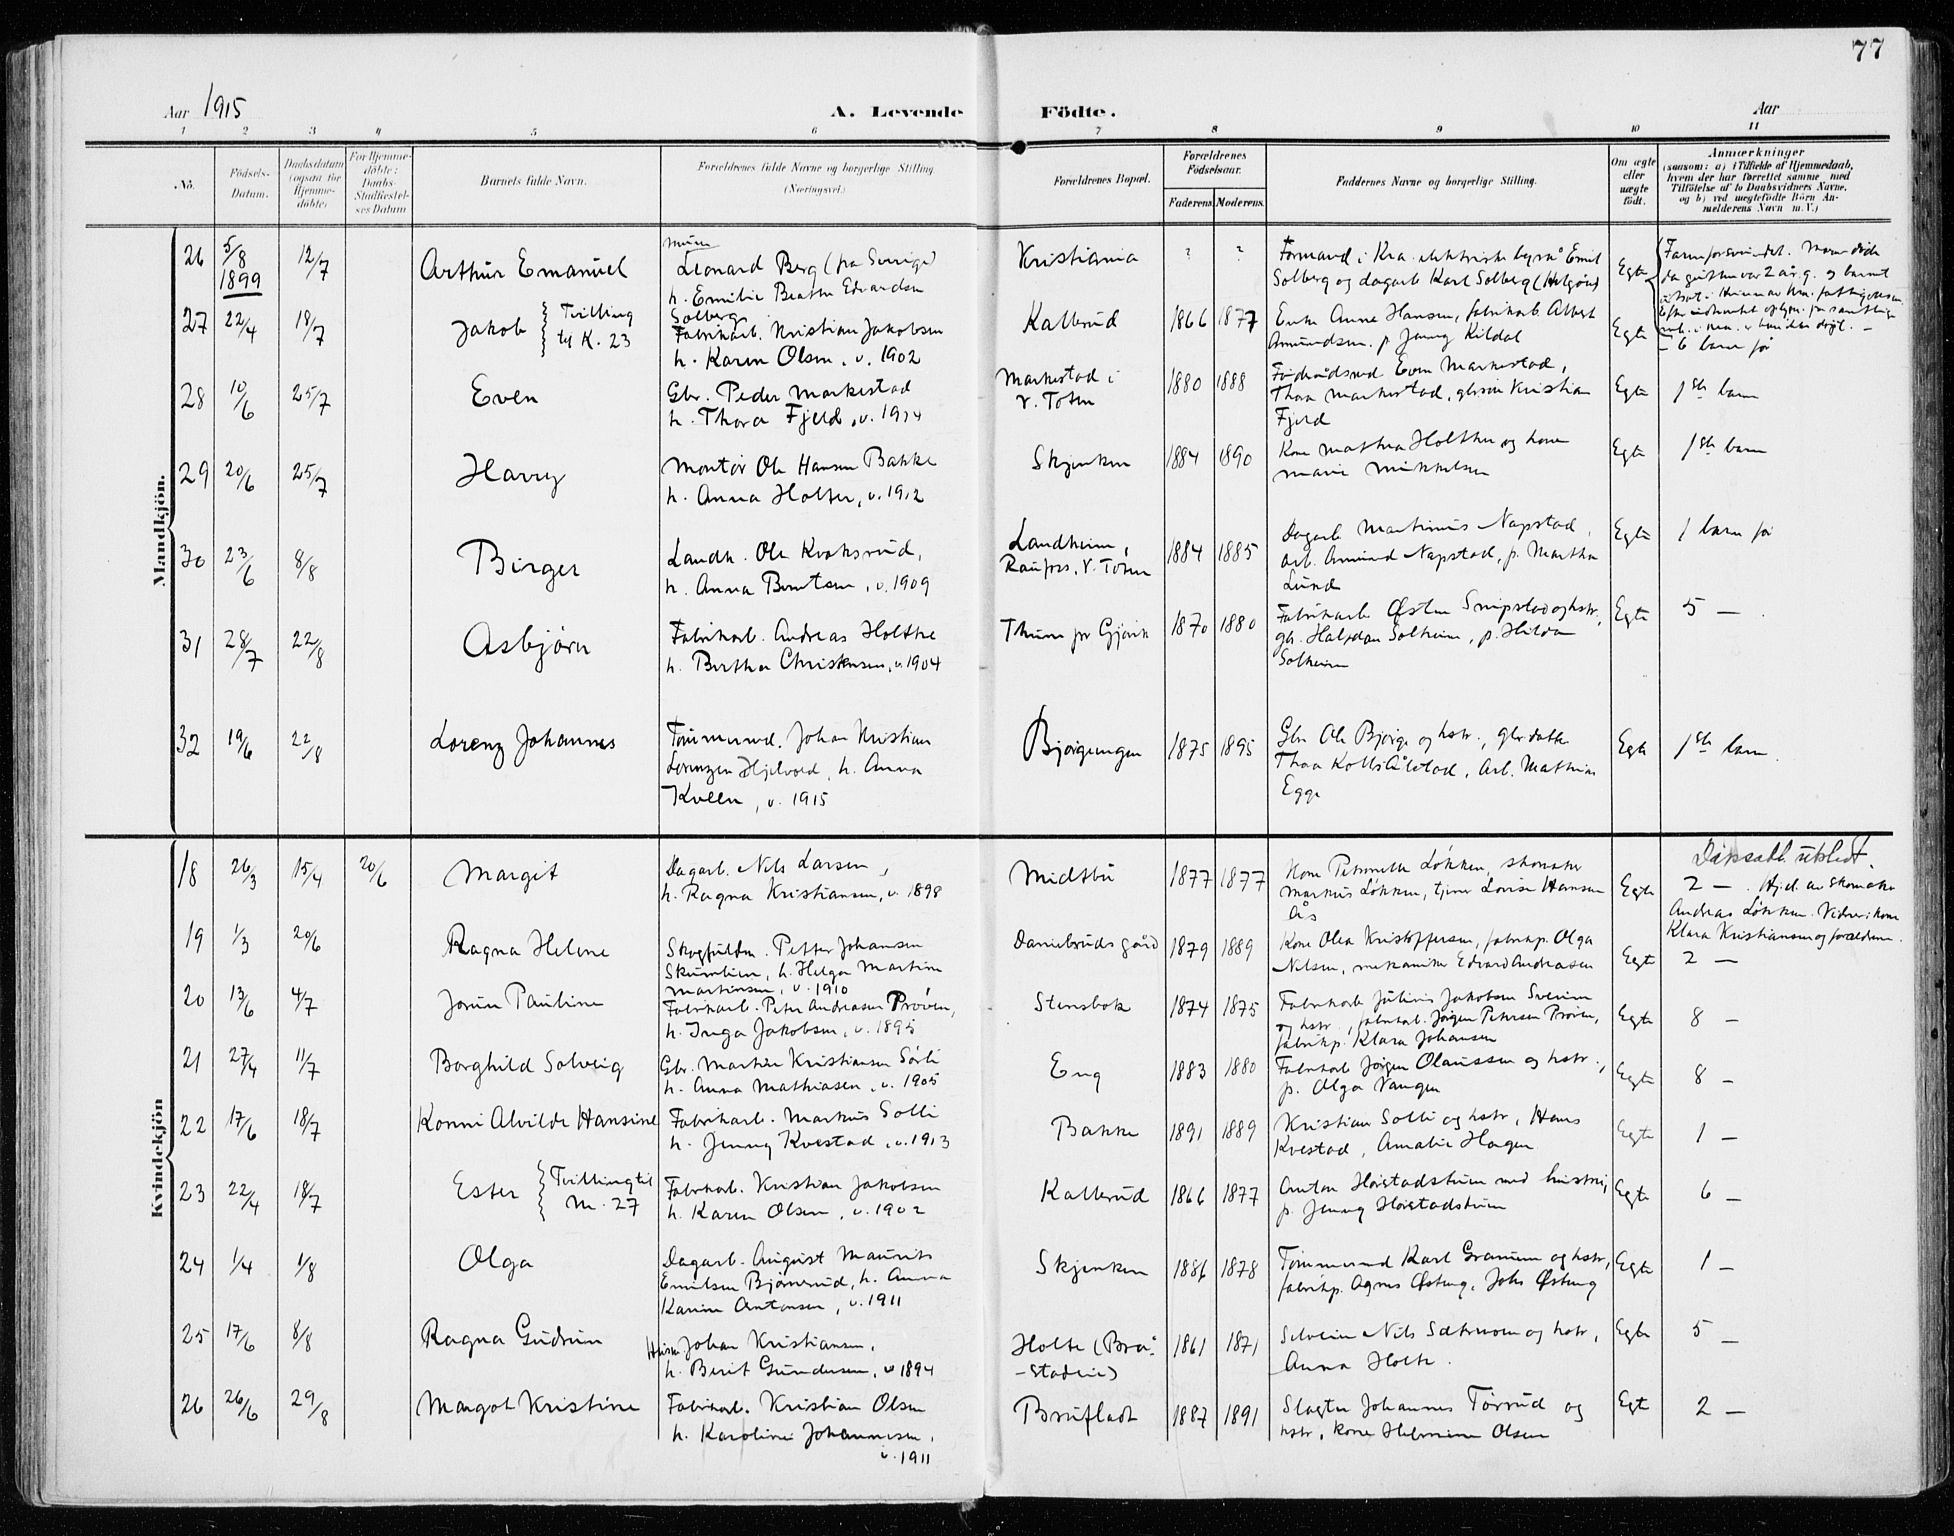 77
Aar 1915
A. Levende Födte.
Aar
1 2 3 4 5 6 7 8 9 10 11
No.
Födsels-Datum.
Daabsdatum (ogsaa for Hjemme-döbte)
For Hjemme-döbte: Daabs-Stadfæstel-ses Datum
Barnets fulde Navn.
Forældrenes fulde Navne og borgerlige Stilling (Næringsvei.)
Forældrenes Bopæl.
Forældrenes Födselsaar.
Faderens. Moderens.
Faddernes Navne og borgerlige Stilling.
Om ægte eller uægte födt.
Anmærkninger
(saasom: a) i Tilfælde af Hjemmedaab,
hvem der har forrettet samme med
Tilföielse af to Daabsvidners Navne,
og b) ved uægtefödte Börn An-
melderens Navn m. V.)
Mandkjön.
26 5/8 1899 12/7 Arthur Emanuel
Murer
Leonard Berg (fra Sverige)
h. Emilie Beathe Edvardsen
Solberg
Kristiania ? ?
Formand i Kra. elektriske byrå Emil
Solberg og dagarb. Karl Solberg (Helgøen)
Egte
27 22/4 18/7 Jakob Tvilling
til K. 23
Fabrikarb. Kristian Jakobsen
h. Karen Olsen, v. 1902
Kallerud 1866 1877
Enke Anne Hansen, fabrikarb. Albert
Amundsen, p. Jenny Kildal
Egte
– 6 barn før
28 10/6 25/7 Even
Gbr. Peder Markestad
h. Thora Fjeld, v. 1914
Markestad i
V. Toten
1880 1888
Føderådsmd Even Markestad,
Thea Markestad, gbrsøn Kristian
Fjeld
Egte 1ste barn
29 20/6 25/7 Harry
Montør Ole Hansen Bakke
h. Anna Holter, v. 1912
Skjerken 1884 1890
Kone Mathea Holther og kone
Marie Mikkelsen
Egte 1ste barn
30 23/6 8/8 Birger
Landh. Ole Kraksrud,
h. Anna Berntsen, v. 1909
Landheim,
Raufoss, V. Toten
1884 1885
Dagarb. Martinius Napstad,
arb. Amund Napstad, p. Martha
Lund
Egte 1 barn før
31 28/7 22/8 Asbjørn
Fabrikarb. Andreas Holthe
h. Berthe Christensen, v. 1904
Thune pr Gjøvik 1870 1880
Fabrikarb. Østen Snipstad og hstr,
gb. Halfdan Solheim, p. Hilda
Solheim
Egte 5 –
32 19/6 22/8 Lorenz Johannes
Tømmermd. Johan Kristian
Lorenzen Hjelvold, h. Anna
Kolln, v. 1915
Bjørgeungen 1875 1895
Gbr Ole Bjørge og hstr., gbrdatter
Thea Kolls Ålstad, Arb. Mathias
Egge
Egte 1ste barn
Kvindekjön
18 26/3 15/4 20/6 Margit
Dagarb. Nils Larsen,
h. Ragna Kristiansen, v. 1898
Midtbu 1877 1877
Kone Petronelle Løkken, skomaker
Markus Løkken, tjener Lovise Hansen
Ås
Egte
Dåpsatt. utstedt.
2 – . Hj.d. av skomaker
Andreas Løkken. Vidner: kone
Klara Kristiansen og forældrene.
19 1/3 20/6 Ragna Helene
Skogfuldm. Petter Johansen
Skumlien, h. Helga Martine
Martinsen, v. 1910
Danielsruds gård 1879 1889
Kone Olea Kristoffersen, fabrikp. Olga
Nilsen, mekaniker Edvard Andreasen
Egte 2 –
20 13/6 4/7 Jorun Pauline
Fabrikarb. Peter Andreasen Prøven,
h. Inga Jakobsen, v. 1895
Stensbak 1874 1875
Fabrikarb Julius Jakobsen Sveum
og hstr., fabrikarb. Jørgen Petersen Prøven,
fabrikp. Klara Johansen
Egte 8 –
21 27/4 11/7 Borghild Solveig
Gbr. Martin Kristiansen Sørli
h. Anna Mathiasen, v. 1905
Eng 1883 1880
Fabrikarb Jørgen Olaussen og hstr.,
p. Olga Vangen
Egte 8 –
22 17/6 18/7 Konni Alvilde Hansine
Fabrikarb. Markus Solli
h. Jenny Kvestad, v. 1913
Bakke 1891 1889
Kristian Solli og hstr, Hans
Kvestad, Amalie Hagen
Egte 1 –
23 22/4 18/7 Ester Tvilling til
M. 27
Fabrikarb. Kristian Jakobsen
h. Karen Olsen, v. 1902
Kallerud 1866 1877
Anton Horstadstuen med hustru,
p. Jenny Horstadstuen
Egte 6 –
24 1/4 1/8 Olga
Dagarb. August Maurits
Emilsen Bjørnerud, h. Anna
Karine Antonsen, v. 1911
Skjerken 1886 1878
Tømmermd Karl Granum og hstr,
fabrikp. Agnes Østeng, Johs Østeng
Egte 1 –
25 17/6 8/8 Ragna Gudrun
Husm Johan Kristiansen,
h. Berit Gundersen, v 1894
Holte (Brå-
-stadlie)
1861 1871
Selveier Nils Sætremoen og hstr,
Anna Holte.
Egte 5 –
26 26/6 29/8 Margot Kristine
Fabrikarb. Kristian Olsen
h. Karoline Johannesen,
v. 1911
Brufladt 1887 1891
Slagter Johannes Tørrud og
hstr, kone Helmine Olsen
Egte 2 –